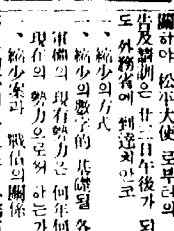 關하야 松平大使로부터의
告及請訓은 廿二日午後가 되
도 外務省에 到達치안코
一、縮少의 方式
一、縮少의 數字的 基礎될 各
軍備의 現有勢力은 何年何
現在의 勢力으로써 하는가
一、縮少案과 戰債의 關係